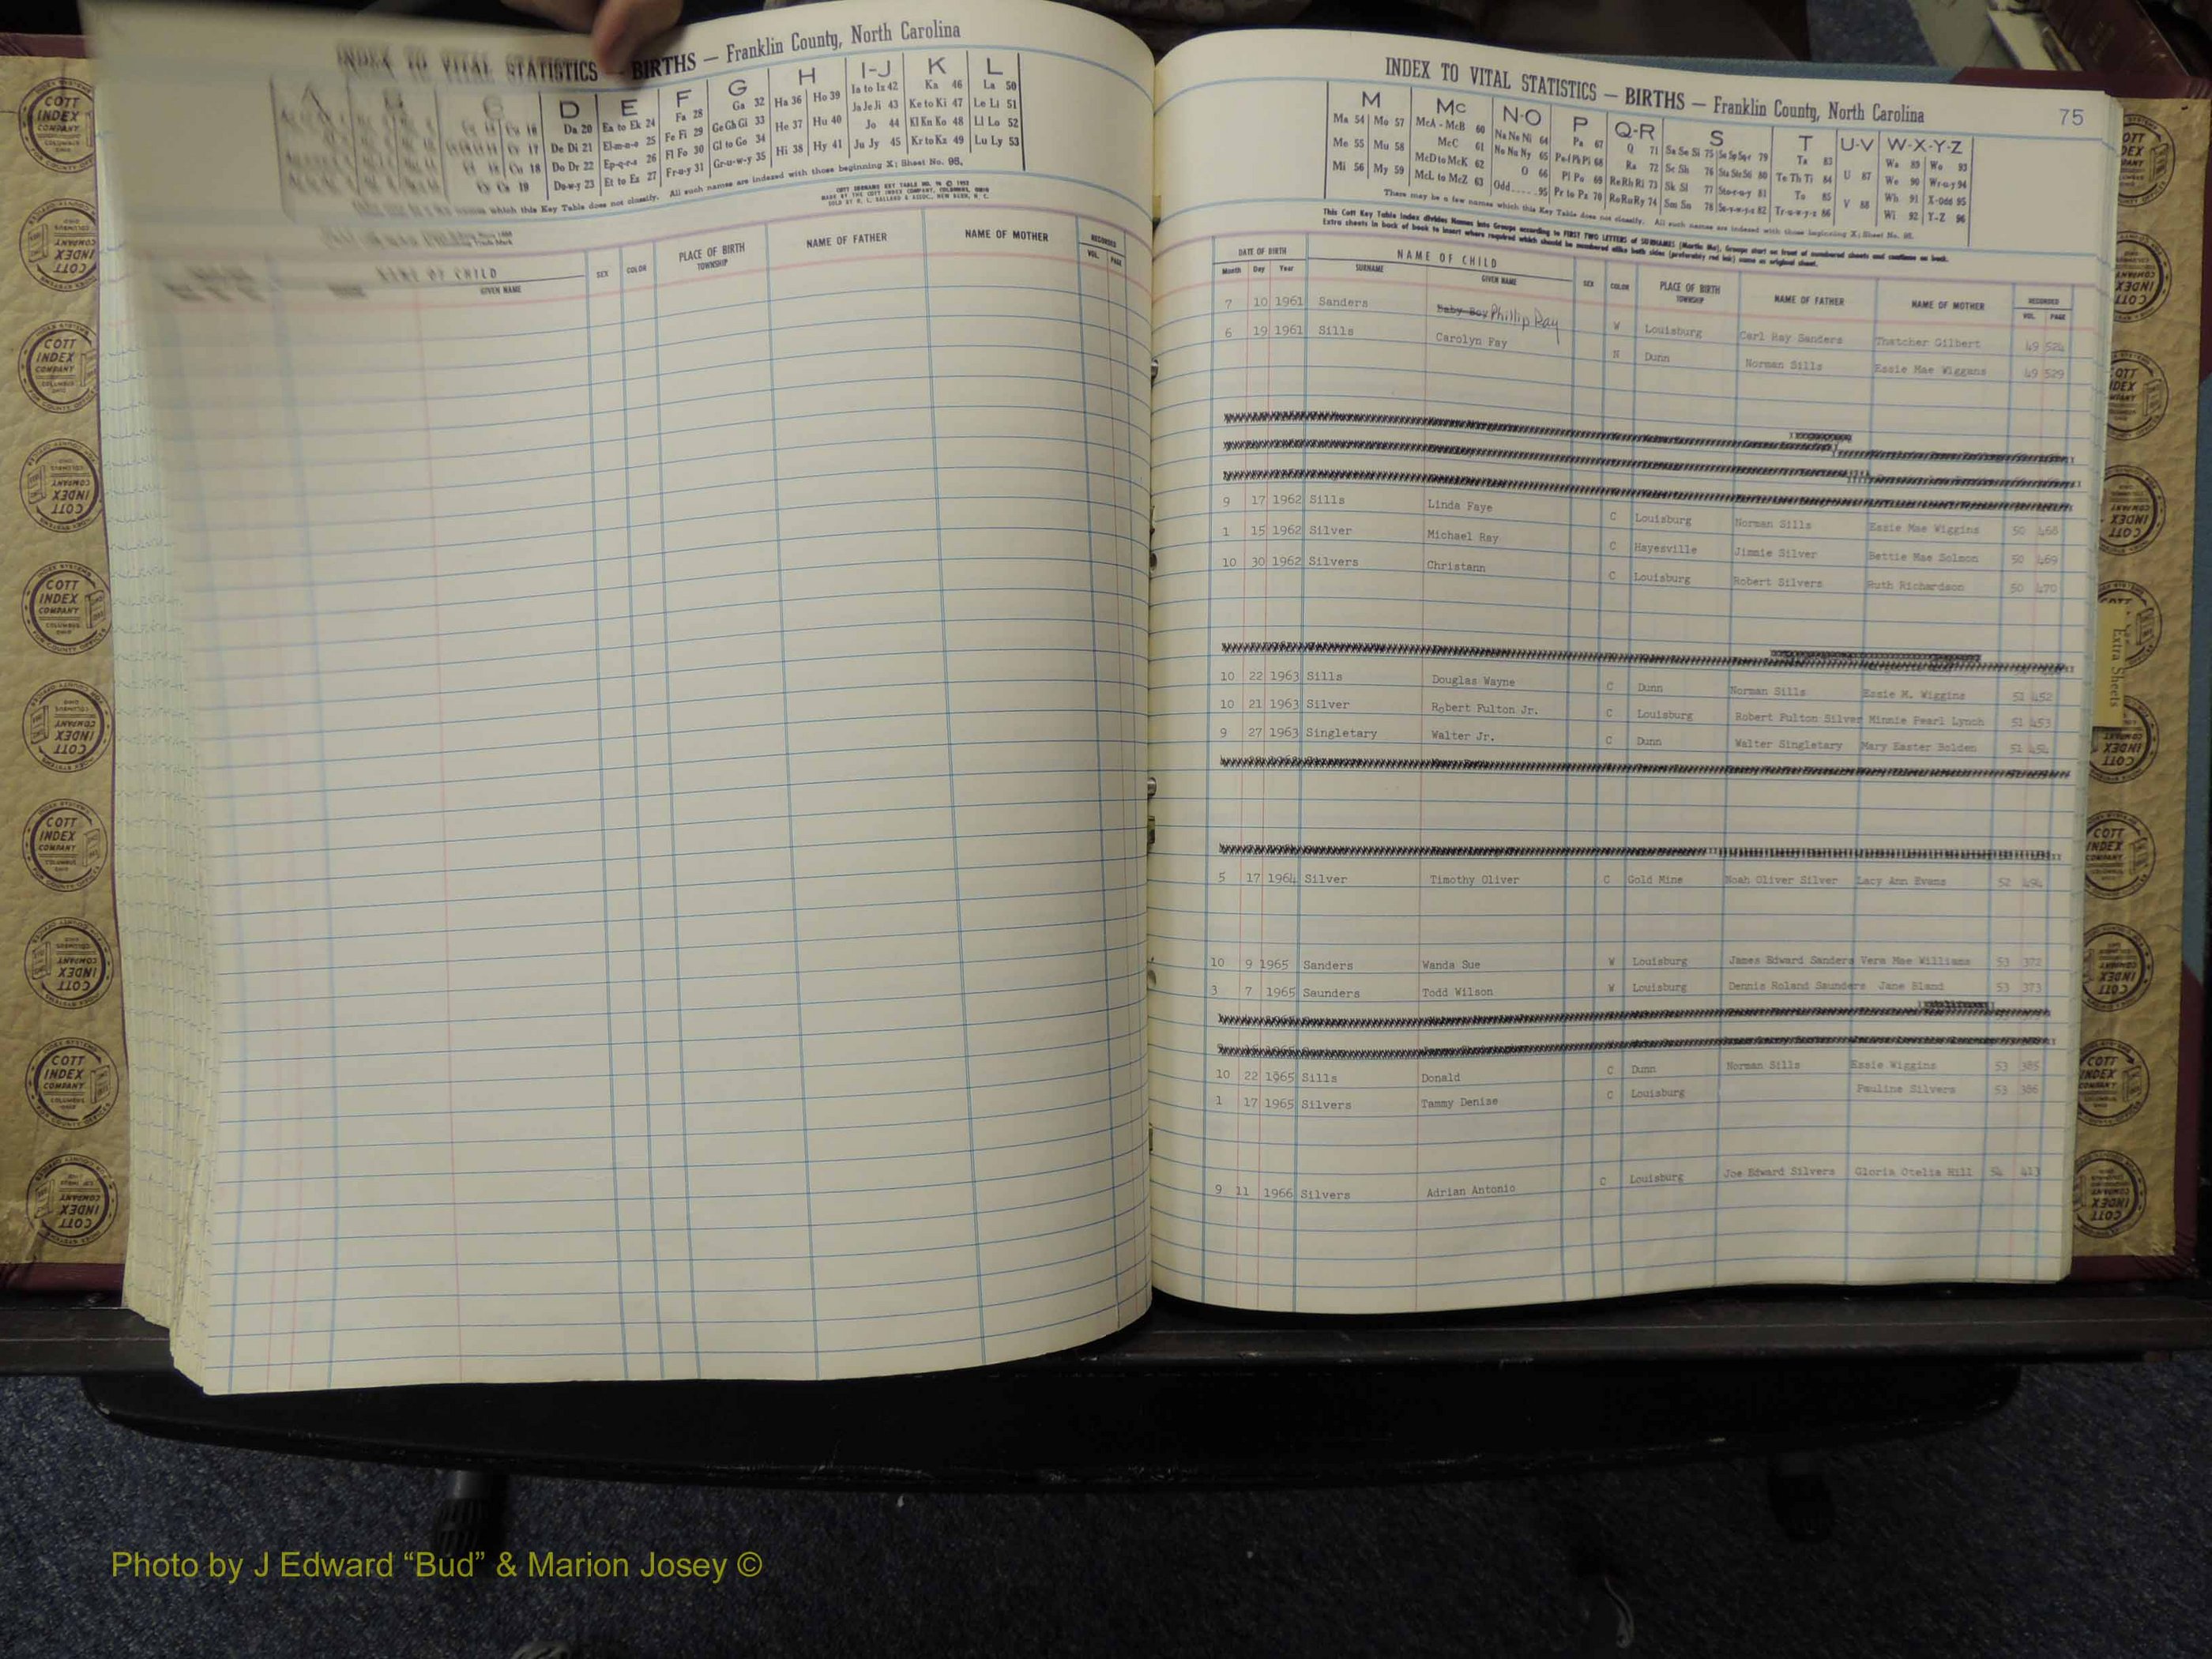 INDEX TO VITAL STATISTICS — BIRTHS — Franklin County, North Carolina
D E F G H I-J K L
Da 20 Ea to Ek 24 Fa 28 Ga 32 Ha 36 Ho 39 Ia to Iz 42 Ka 46 La 50
De Di 21 El-m-n-o 25 Fe Fi 29 Ge Gh Gi 33 He 37 Hu 40 Ja Je Ji 43 Ke to Ki 47 Le Li 51
Do Dr 22 Ep-q-r-s 26 Fl Fo 30 Gl to Go 34 Hi 38 Hy 41 Jo 44 Kl Kn Ko 48 Ll Lo 52
Du-w-y 23 Et to Ez 27 Fr-u-y 31 Gr-u-w-y 35 Ju Jy 45 Kr to Kz 49 Lu Ly 53
names which this Key Table does not classify. All such names are indexed with those beginning X; Sheet No. 95.
NAME OF CHILD
GIVEN NAME SEX COLOR PLACE OF BIRTH TOWNSHIP NAME OF FATHER NAME OF MOTHER RECORDED VOL. PAGE
INDEX TO VITAL STATISTICS — BIRTHS — Franklin County, North Carolina 75
M Mc N-O P Q-R S T U-V W-X-Y-Z
Ma 54 Mo 57 McA - McB 60 Na Ne Ni 64 Pa 67 Q 71 Sa Se Si 75 79 Ta 83 Wa 89 Wo 93
Me 55 Mu 58 McC 61 No Nu Ny 65 Pe-f Ph Pi 68 Ra 72 Sc Sh 76 80 Te Th Ti 84 U 87 We 90 Wr-u-y 94
Mi 56 My 59 McD to McK 62 O 66 Pl Po 69 Re Rh Ri 73 Sk Sl 77 81 To 85 V 88 Wh 91 X-Odd 95
McL to McZ 63 Odd 95 Pr to Pz 70 Ro Ru Ry 74 Sm Sn 78 82 Tr-u-w-y-z 86 Wi 92 Y-Z 96
There may be a few names which this Key Table does not classify. All such names are indexed with those beginning X; Sheet No. 95.
This Cott Key Table Index divides Names into Groups according to FIRST TWO LETTERS of SURNAMES (Martin Ma). Groups start on front of numbered sheets and continue on back.
Extra sheets in back of book to insert where required which should be numbered alike both sides (preferably red ink) same as original sheet.
DATE OF BIRTH NAME OF CHILD
Month Day Year SURNAME GIVEN NAME SEX COLOR PLACE OF BIRTH TOWNSHIP NAME OF FATHER NAME OF MOTHER RECORDED VOL. PAGE
7 10 1961 Sanders Baby Boy Phillip Ray W Louisburg Carl Ray Sanders Thatcher Gilbert 49 524
6 19 1961 Sills Carolyn Fay N Dunn Norman Sills Essie Mae Wiggins 49 529
9 17 1962 Sills Linda Faye C Louisburg Norman Sills Essie Mae Wiggins 50 468
1 15 1962 Silver Michael Ray C Hayesville Jimmie Silver Bettie Mae Solmon 50 469
10 30 1962 Silvers Christann C Louisburg Robert Silvers Ruth Richardson 50 470
10 22 1963 Sills Douglas Wayne C Dunn Norman Sills Essie M. Wiggins 51 452
10 21 1963 Silver Robert Fulton Jr. C Louisburg Robert Fulton Silver Minnie Pearl Lynch 51 453
9 27 1963 Singletary Walter Jr. C Dunn Walter Singletary Mary Easter Bolden 51 454
5 17 1964 Silver Timothy Oliver C Gold Mine Noah Oliver Silver Lacy Ann Evans 52 494
10 9 1965 Sanders Wanda Sue W Louisburg James Edward Sanders Vera Mae Williams 53 372
3 7 1965 Saunders Todd Wilson W Louisburg Dennis Roland Saunders Jane Bland 53 373
10 22 1965 Sills Donald C Dunn Norman Sills Essie Wiggins 53 385
1 17 1965 Silvers Tammy Denise C Louisburg Pauline Silvers 53 386
9 11 1966 Silvers Adrian Antonio C Louisburg Joe Edward Silvers Gloria Otelia Hill 54 413
Extra Sheets
COTT INDEX COMPANY
Photo by J Edward “Bud” & Marion Josey ©